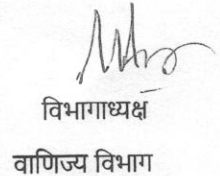 विभागाध्यक्ष
वाणिज्य विभाग